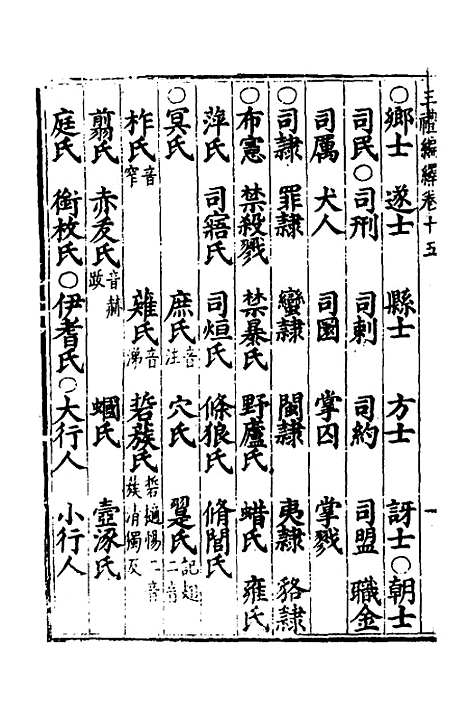 三禮編繹卷十五 一
○鄉士 遂士 縣士 方士 訝士○朝士
司民○司刑 司刺 司約 司盟 職金
司厲 犬人 司圜 掌囚 掌戮
○司隷 罪隷 蠻隷 閩隷 夷隷 貉隷
○布憲 禁殺戮 禁暴氏 野廬氏 蜡氏 雍氏
萍氏 司寤氏 司烜氏 條狼氏 脩閭氏
○冥氏 庶氏音注 穴氏 翨氏記翅二音
柞氏音窄 薙氏音涕 硩蔟氏硩通惕二音蔟清獨反
翦氏 赤犮氏音赫跋 蟈氏 壺涿氏
庭氏 銜枚氏○伊耆氏○大行人 小行人